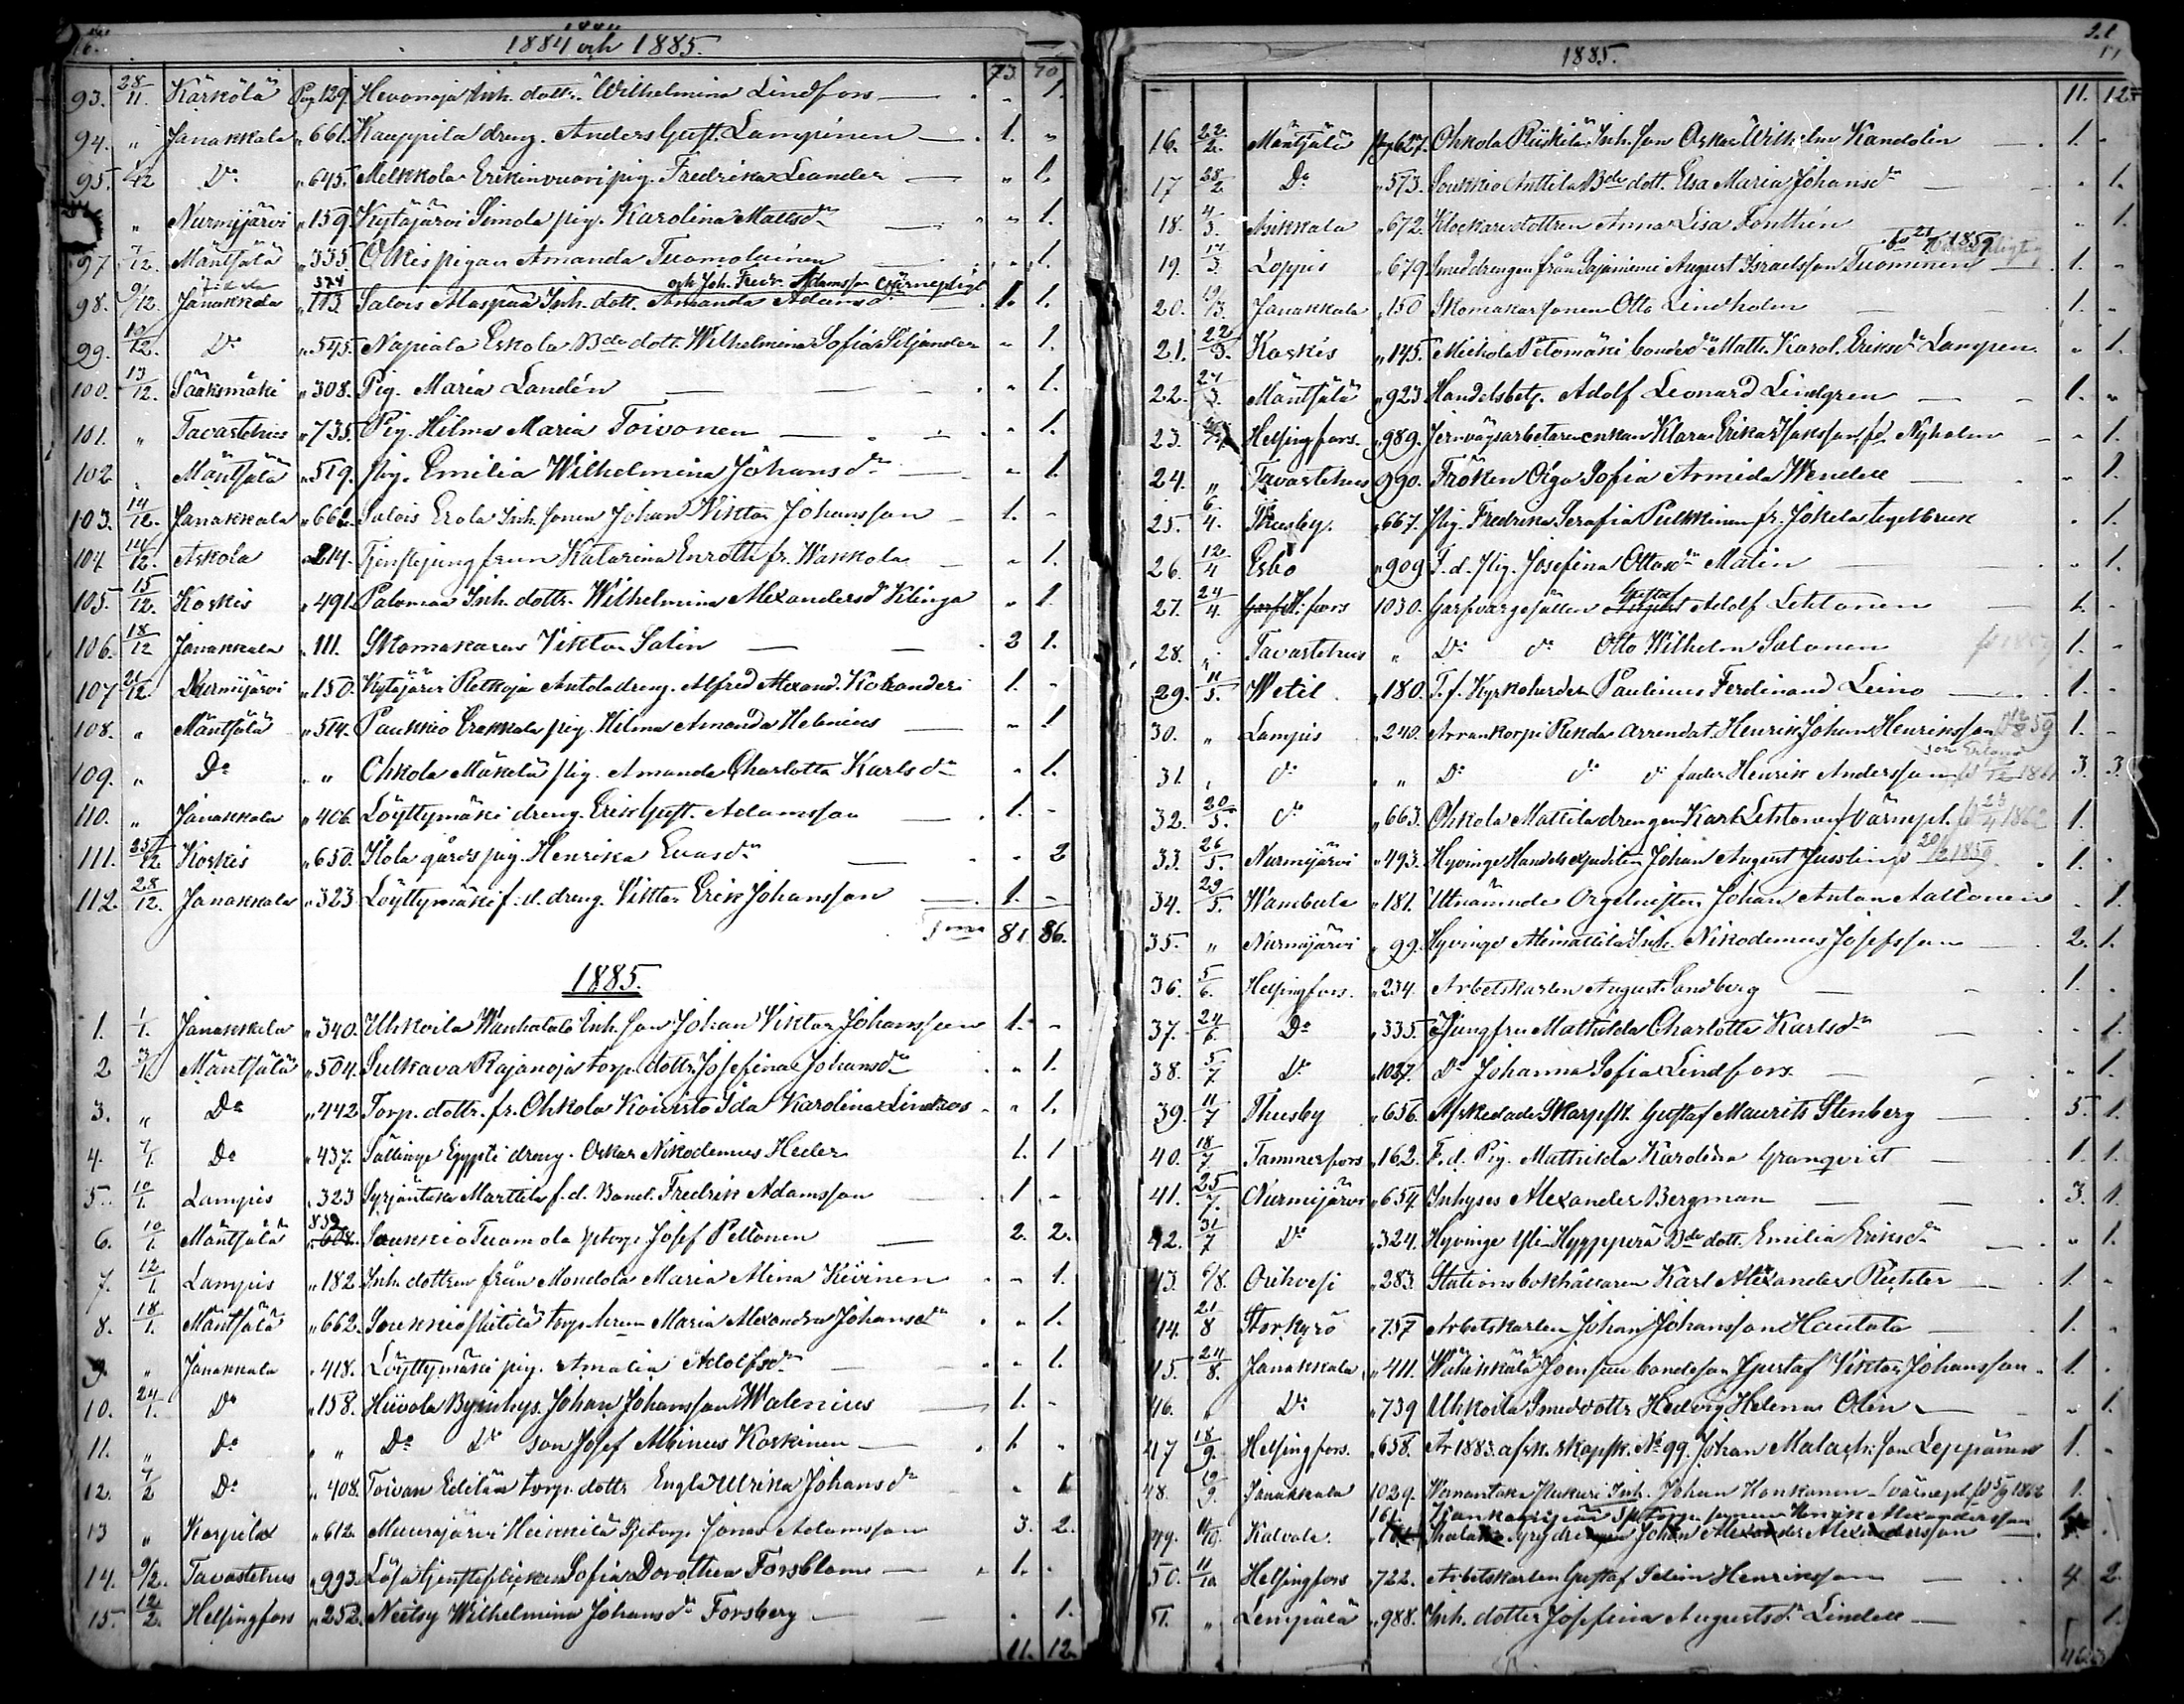 16.
1884 och 1885.
73. 70
93. 28/11. Kärkölä Pag 129. Hevonoja Inh. dottr. Wilhelmina Lindfors — " 1.
94. " Janakkala " 661. Kauppila dreng. Anders Gust. Lampinen — 1. "
95. 1/12 Do " 645. Melkkola Erikinvuori pig. Fredrika Leander — " 1.
" Nurmijärvi " 159 Kytäjärvi Simola pig. Karolina Mattsdr — " 1.
97 7/12. Mäntsälä " 335. Olkis pigan Amanda Tuomolainen " 1.
574 och Joh. Fredr. Adamsson Wärnepligt
98. 9/12. Janakkala " 113 Salois Alaspää Inh. dott. Amanda Adamsdr 1. 1.
99. 10/12. Do " 545. Napiala Eskola Bde dott. Wilhelmina Sofia Siljander " 1.
100. 13/12. Sääksmäki " 308. Pig. Maria Landén — " 1.
101. " Tavastehus " 735. Pig. Hilma Maria Toivonen — " 1.
102 " Mäntsälä " 519. pig. Emilia Wilhelmina Johansdr — " 1.
103. 14/12. Janakkala " 662. Salois Erola Inh. sonen Johan Viktor Johansson — 1. -
104 14/12. Askola " 214. Tjenstejungfrun Katarina Enroth fr. Wakkola — " 1.
105. 15/12. Koskis " 491. Palomaa Inh. dottr. Wilhelmina Alexandersdr Klinga " 1.
106. 18/12 Janakkala " 111. Skomakaren Viktor Salin — 2 1.
107 21/12. Nurmijärvi " 150. Kytäjärvi Retkoja Antola dreng. Alfred Alexand. Kokander 1. -
108. " Mäntsälä " 514. Paukkio Erakkala pig. Hilma Amanda Helenius — " 1
109. " Do " " Ohkola Mäkelä pig. Amanda Charlotta Karlsdr " 1.
110. " Janakkala " 406 Löyttymäki dreng. Erik Gust. Adamsson — 1. -
111. 25/12 Koskis " 650. Kola gårds pig. Henrika Evasdr — " 2
112. 28/12. Janakkala " 323 Löyttymäki f. d. dreng. Viktor Erik Johansson — 1. -
Sma 81. 86.
1885.
1. 1/1. Janakkala " 340. Uhkoila Wanhatalo Inh. son Johan Viktor Johansson 1. -
2 3/1 Mäntsälä " 504. Sulkava Rajanoja torp. dottr. Josefina Johansdr " 1.
3. " Do " 442 Torp. dottr. fr. Ohkola Koivisto Ida Karolina Lindroos " 1.
4. 7/1. Do " 437. Sällinge Egypti dreng. Oskar Nikodemus Heder 1. 1
5. 10/1. Lampis " 323 Syrjäntaka Marttila f. d. Bond. Fredrik Adamsson — 1 -
6. 10/1. Mäntsälä 832 Soukkio Tuomola sptorp. Josef Peltonen — 2. 2.
7. 12/1. Lampis " 182 Inh. dottren från Mondola Maria Mina Kivinen " 1.
8. 18/1. Mäntsälä " 662. Soukkio torp. Maria Alexandra Johansdr " 1.
9. " Janakkala " 418. Löyttymäki pig. Amalia Adolfsdr — " 1.
10. 24/1. Do " 158. Hiivola By inhys. Johan Johansson Walenius — 1. -
11. " Do " " Do Do son Josef Albinus Koskinen — 1. "
12. 4/2 Do " 408. Toivan Eililän torp. dottr Engla Ulrika Johansdr " 1
13 " Karpila " 612. Muurajärvi Heikkilä sptorp. Jonas Adamsson 3. 2.
14. 9/2. Tavastehus " 993. Lösa tjensteflickan Sofia Dorothea Forsblom — 1. -
15. 12/2. Helsingfors " 252. Neitsy Wilhelmina Johansdr Forsberg — " 1.
11. 12.
1885.
11. 12
16. 22/2. Mäntsälä Pag 627. Ohkola Riiskilä Inh. son Oskar Wilhelm Kandolin 1. -
17 28/2 Do " 573. Soukkio Anttila Bde dott. Elsa Maria Johansdr — " 1.
18. 4/3. Asikkala " 672. Klockaredottren Anna Lisa Fonthén " 1.
19. 14/3. Loppis " 679. Smeddrengen från Sajaniemi August Israelsson Tuominen 1. -
20. 19/3. Janakkala " 150 Skomakarsonen Otto Lindholm 1. -
21. 22/3. Koskis " 145. Michola Petomäki bonded. Math. Karol. Eriksdr Lampen. " 1.
22. 24/3. Mäntsälä " 923 Handelsbetj. Adolf Leonard Lindgren — 1. "
23. Helsingfors. " 989. Jernvägsarbetareenkan Klara Erika Isaksson fd. Nyholm " 1.
24. " Tavastehus 990. Fröken Olga Sofia Armida Wendell — " 1.
25. 6/4. Thusby. " 667. pig. Fredrika Serafia Pulkkinen fr. Jokela tegelbruk " 1.
26. 12/4 Esbo " 909. F. d. pig. Josefina Ottosdr Malin " 1.
27. 24/4. H:fors 1030. Garfvargesällen Gustaf Adolf Lehtonen 1. -
28. " Tavastehus " Do do Otto Wilhelm Salonen 1. -
29. 11/5. Wetil " 180. T. f. Kyrkoherden Paulinus Ferdinand Leino — 1. -
30. " Lampis " 240. Arrankorpi Rekola arrendat. Henrik Johan Henriksson 1. -
31. " do " " Do do do fader Henrik Andersson 3. 3.
32. 20/5. do " 663. Ohkola Mattila drengen Karl Lehtonen /värnepl. 23/4 1862 1.
33. 26/5. Nurmijärvi " 493. Hyvinge Handelsexpediten Johan August Jusslin 20/2 1859. 1. -
34. 29/5. Wambula " 181. Utnämnde Orgelnisten Johan Anton Aaltonen " 1.
35. " Nurmijärvi " 99. Hyvinge Alimattila Inh. Nikodemus Josefsson 2. 1.
36. 5/6. Helsingfors. " 234. Arbetskarlen August Sandberg 1. -
37. 24/6. Do " 335. Jungfru Mathilda Charlotta Karlsdr — " 1.
38. 5/7 Do " 1027. Do Johanna Sofia Lindfors — " 1.
39. 11/7 Thusby " 656. Afskedade Skarpsk. Gustaf Maurits Stenberg 5. 1.
40. 18/7. Tammerfors " 162. F. d. Pig. Mathilda Karolina Granqvist 1. 1.
41. 25/7. Nurmijärvi " 654. Inhyses Alexander Bergman — 3. 1.
42. 31/7 Do " 324. Hyvinge Yli-Hyyppärä Bde dott. Emilia Eriksdr " 1.
43. 6/8. Orihvesi " 283. Stationsbokhållaren Karl Alexander Richter 1. -
44. 21/8 Storkyrö " 757 Arbetskarlen Johan Johansson Hautala 1. -
45. 24/8. Janakkala " 411. Wähikkälä Joensuu bondeson Gustaf Viktor Johansson 1. -
46. " Do " 739 Uhkoila Smedvottr Hedvig Helena Olin — " 1.
47 18/9. Helsingfors. " 658. Ar 1883 afsk. skapsk. No 99. Johan Malach. son Leppänen 1. -
48. 19/9. Janakkala 1029. Inh. Johan Honkanen /värnepl. 1862 1.
161. sptorp. sonen Henrik Alexandersson
49. Kalvola. Johan Alexander Alexandersson
50. 11/10. Helsingfors " 722. Arbetskarlen Gustaf Selim Henriksson 4 2.
51. " Lempälä " 988. Inh. dotter Josefina Augustsdr Lindell — 1.
46.